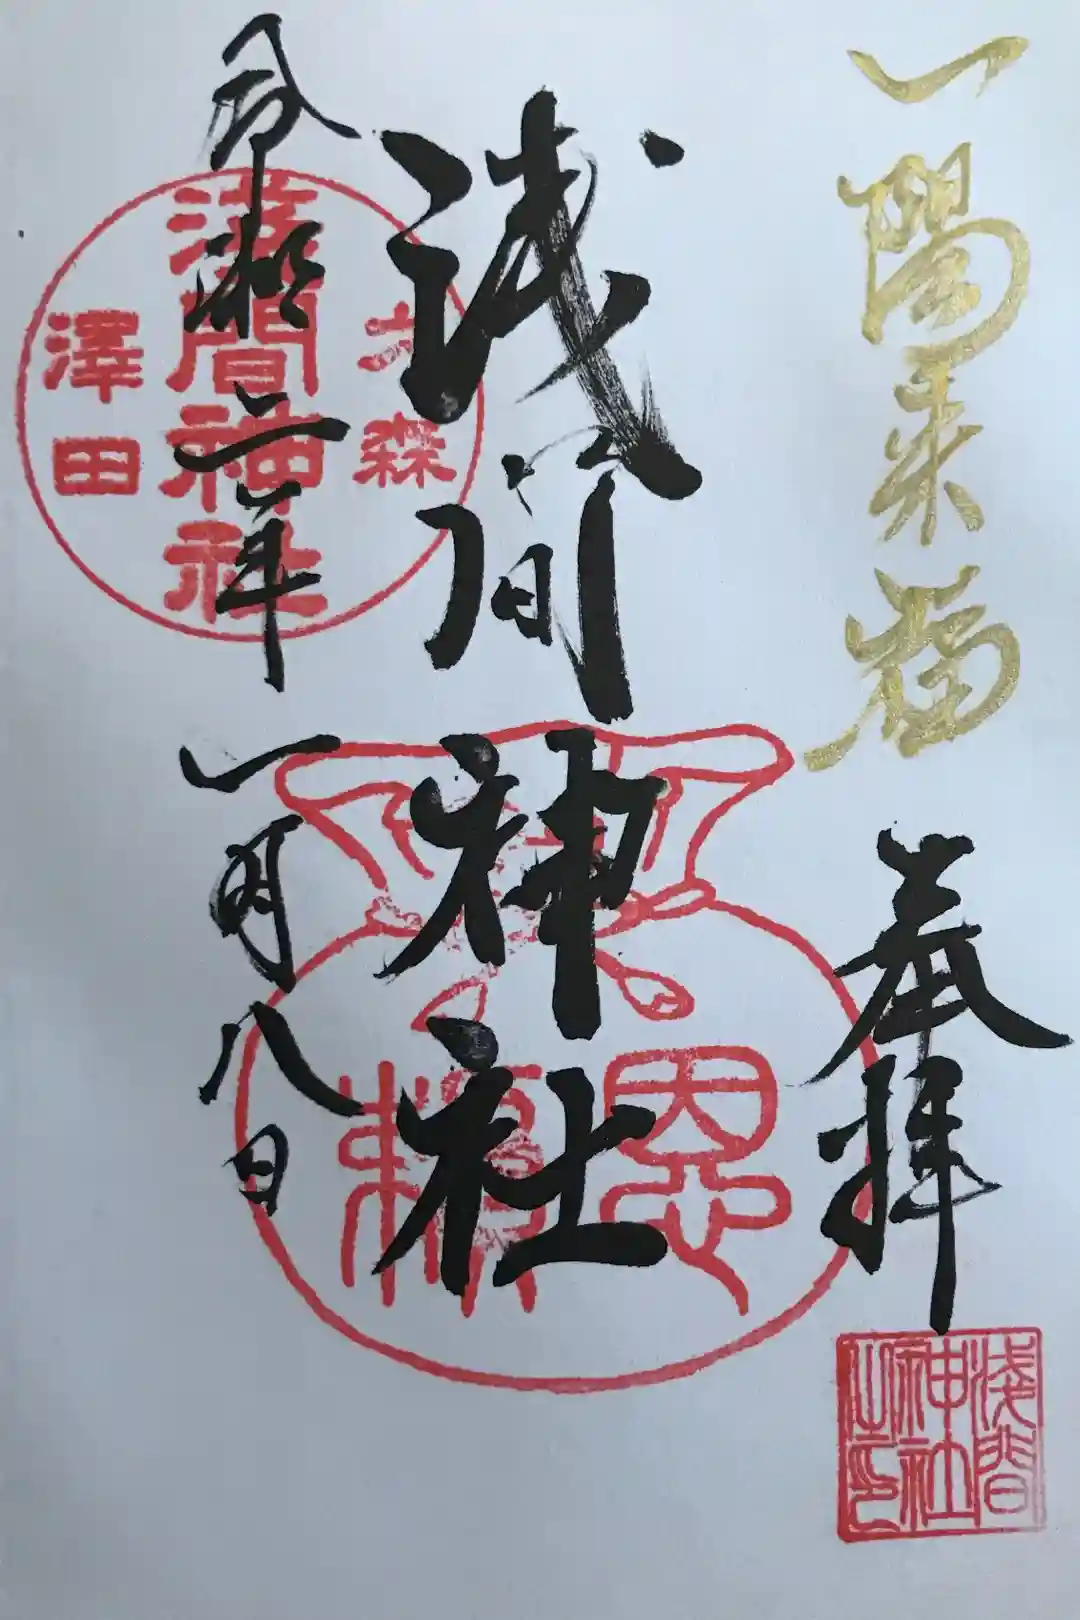 一陽来福
奉拝
淺間神社之印
浅間神社
恩頼
令和二年一月八日
大森
淺間神社
澤田